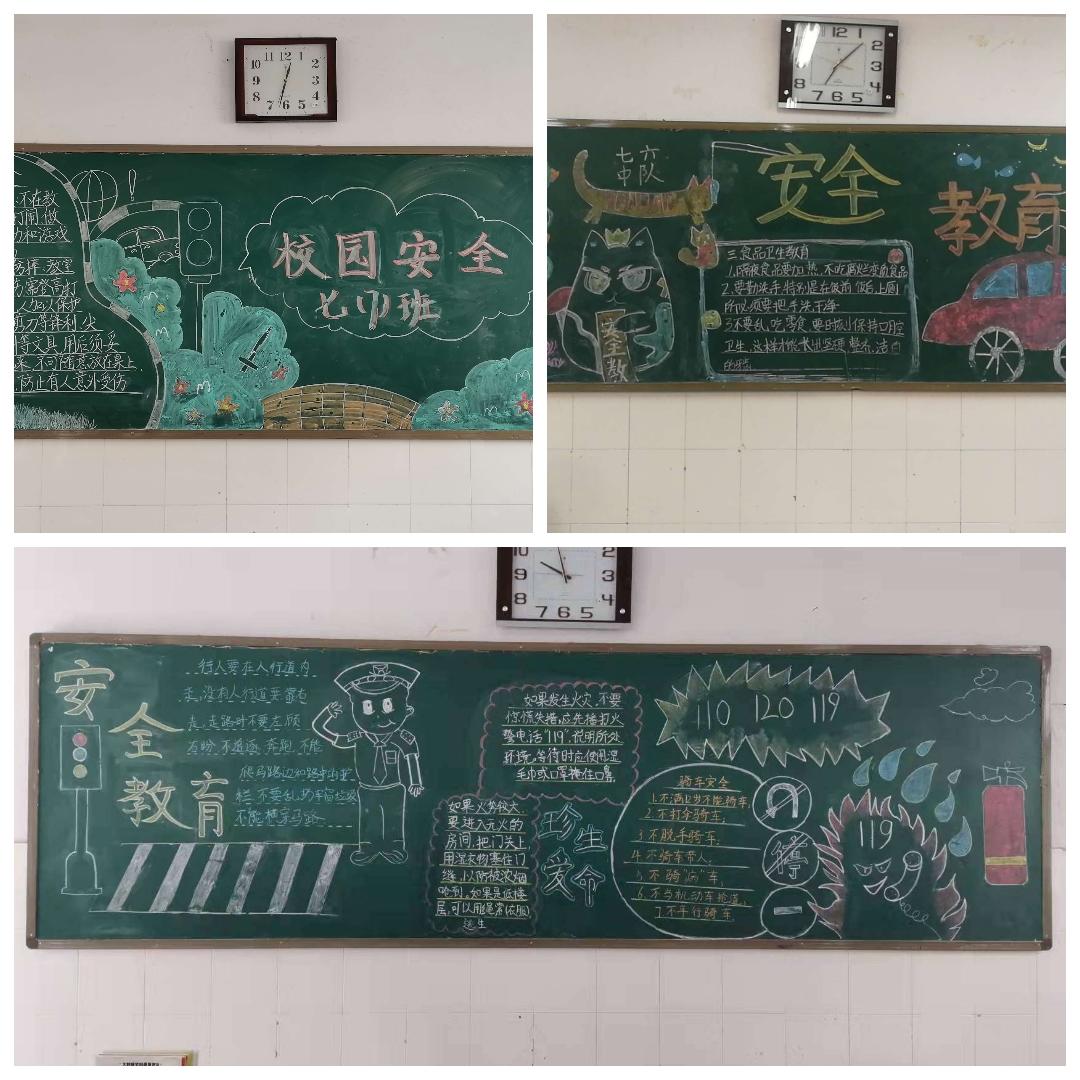 11 12 1
10 2
9 3
8 4
7 6 5
不在教
打闹 做
和游戏
教室
需登高打
人加以保护
剪刀等锋利、尖
等文具,用后须妥
不可随意放在桌上,
防止有人意外受伤
!
校园安全
七(1)班
12 1
2
3
8 4
7 6 5
七六
中队
安全
教育
三食品卫生教育
1.隔夜食品要加热,不吃腐烂变质食品
2.要勤洗手,特别是在饭前饭后,上厕
所后,须要把手洗干净
3.不要乱吃零食,要时刻保持口腔
卫生,这样才能长出坚硬、整齐、洁白
的牙齿
安全教
10 2
9 3
8 4
7 6 5
安全
教育
行人要在人行道内
走,没有人行道要靠右
走,走路时不要左顾
右盼,不追逐、奔跑,不能
爬马路边和路中的护
栏,不要乱扔
不能横穿马路
如果发生火灾,不要
惊慌失措,应先拨打火
警电话"119",说明所处
环境,等待时应使用湿
毛巾或口罩掩住口鼻
如果火势较大,
要进入无火的
房间,把门关上
用湿衣物塞住门
缝,以防被浓烟
呛到,如果是低楼
层,可以用绳索(衣服)
逃生
珍爱
生命
110 120 119
骑车安全
1.不满12岁不能骑车;
2.不打伞骑车;
3.不脱手骑车;
4.不骑车带人;
5.不骑"病"车;
6.不占机动车抢道;
7.不平行骑车
停
119